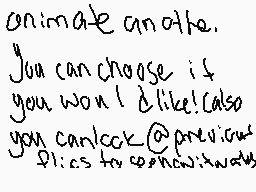 animate anothe.
You can choose if
you would like! (also
you can look @ previous
flics to see how it works